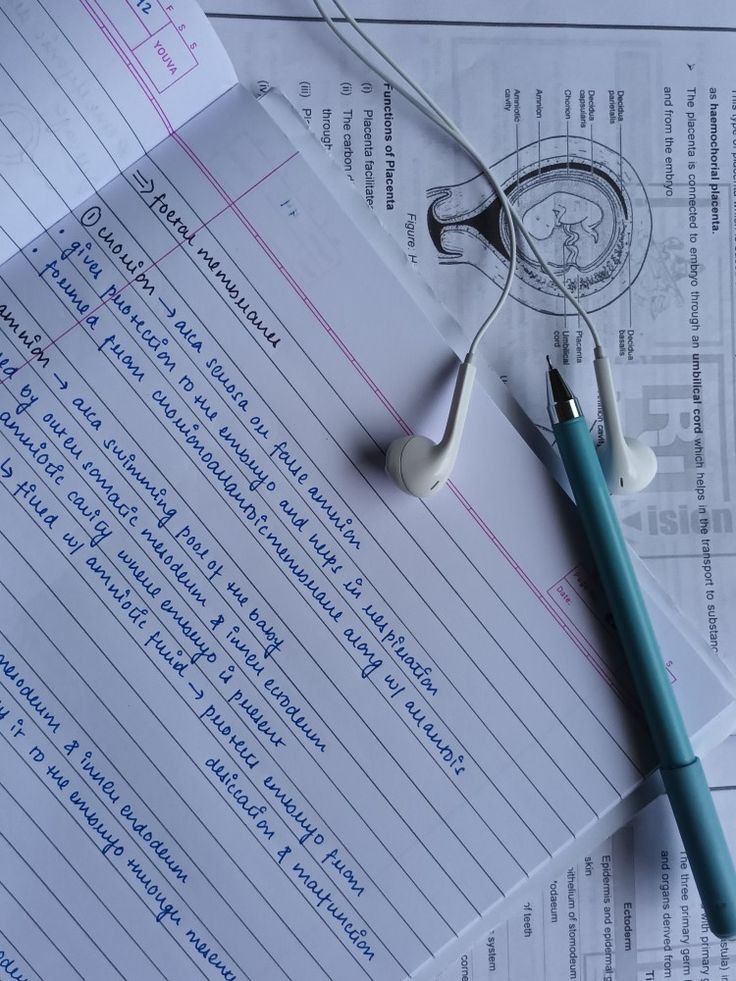 F S S
12
YOUVA
17
=> foetal membrane
① chorion → aka serosa or false amnion
• gives protection to the embryo and helps in respiration
• formed from chorionoallantoic membrane along w/ allantois
amnion → aka swimming pool of the baby
by outer somatic mesoderm & inner ectoderm
amniotic cavity where embryo is present
↳ fixed w/ amniotic fluid → protects embryo from
desiccation & malfunction
mesoderm & inner endoderm
it to the embryo through
Date:
S
as haemochorial placenta.
➤ The placenta is connected to embryo through an umbilical cord which helps in the transport to
and from the embryo
Decidua parietalis
Decidua capsularis
Chorion
Amnion
Amniotic cavity
Decidua basalis
Placenta
Umbilical cord
Figure: H
Functions of Placenta
(i) Placenta facilitate
(ii) The carbon
through
(iii)
(iv)
ision
The three primary germ
and organs derived from
Ectoderm
Epidermis and epidermal
skin
of stomodeum
of teeth
system